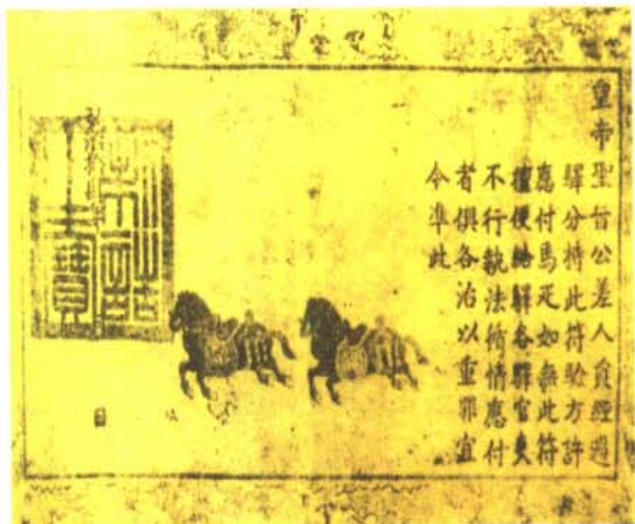 皇帝聖旨公差人員經過
驛分持此符驗方許
應付馬疋如無此符
擅便給驛各驛官吏
不行執法循情應付
者俱各治以重罪宜
令準此
制誥之寶
日